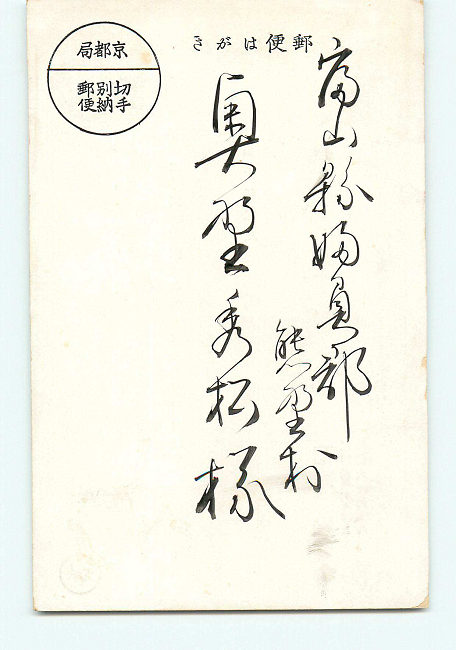 郵便はがき
京都局
切手別納郵便
富山縣婦負郡
熊野村
奥野秀松様